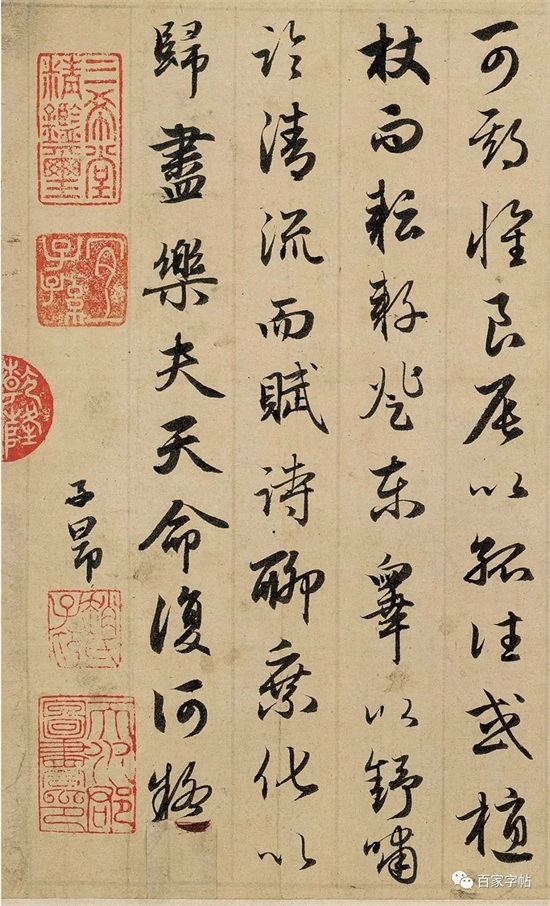 可期懷良辰以孤往或植
杖而耘耔登東皋以舒嘯
臨清流而賦詩聊乘化以
歸盡樂夫天命復何疑
子昂
三希堂精鑑璽
宜子孫
乾隆
趙氏子昂
天水郡圖書印
百家字帖